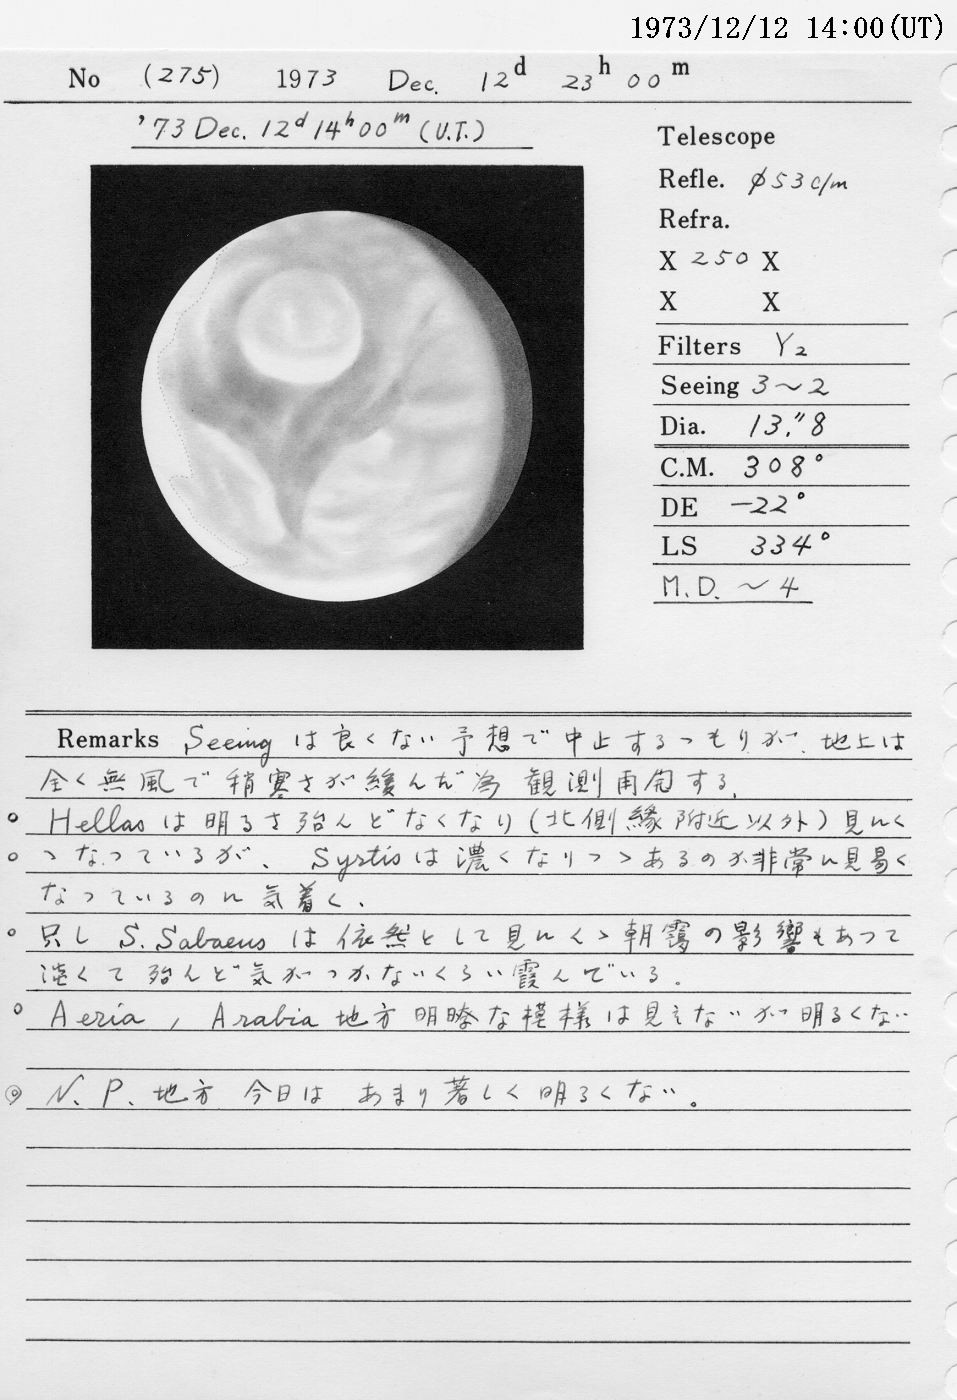 1973/12/12 14:00(UT)
No (275) 1973 Dec. 12d 23h 00m
'73 Dec. 12d 14h 00m (U.T.)
Telescope
Refle. φ53c/m
Refra.
X 250 X
X X
Filters Y2
Seeing 3~2
Dia. 13."8
C.M. 308°
DE -22°
LS 334°
M.D. ~4
Remarks Seeingは良くない予想で中止するつもりが、地上は
全く無風で稍寒さが緩んだ為 観測再開する。
○ Hellasは明るさ殆んどなくなり(北側縁附近以外)見にく
○ ゝなっているが、Syrtisは濃くなりつゝあるのか非常に見易く
なっているのに気着く、
○ 只し S. Sabaeus は依然として見にくゝ朝靄の影響もあって
淡くて殆んど気がつかないくらい霞んでいる。
○ Aeria, Arabia 地方 明瞭な模様は見えないが明るくない
◎ N. P. 地方 今日は あまり著しく明るくない。